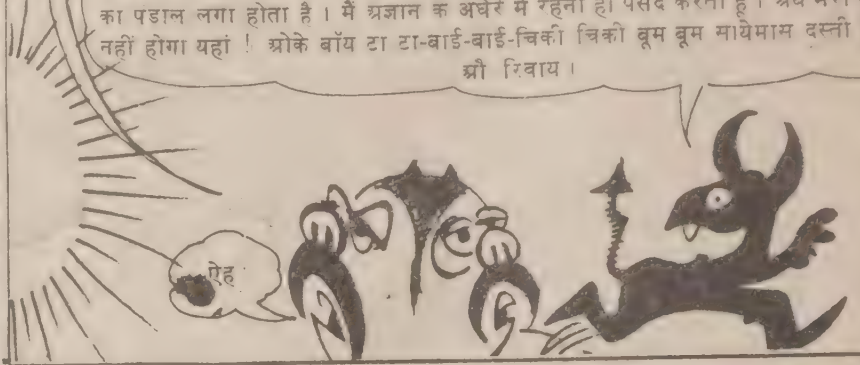 का पंडाल लगा होता है । मैं अज्ञान के अंधेरे में रहना ही पसंद करता हूं ।
नहीं होगा यहां ! ओके बॉय टा टा-बाई-बाई-चिकी चिकी बूम बूम मायेमास दस्ती
श्री रिवाय ।
ऐह